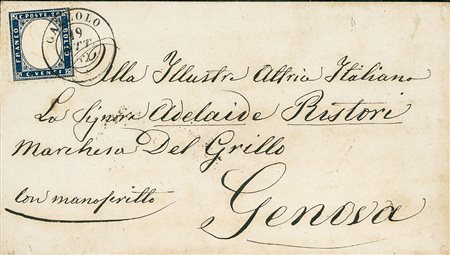 FRANCO
C. POSTE 20
BOLLO
C. VENTI
19
Alla Illustre Attrice Italiano
La Signora Adelaide Ristori
Marchesa Del Grillo
con manoscritto
Genova